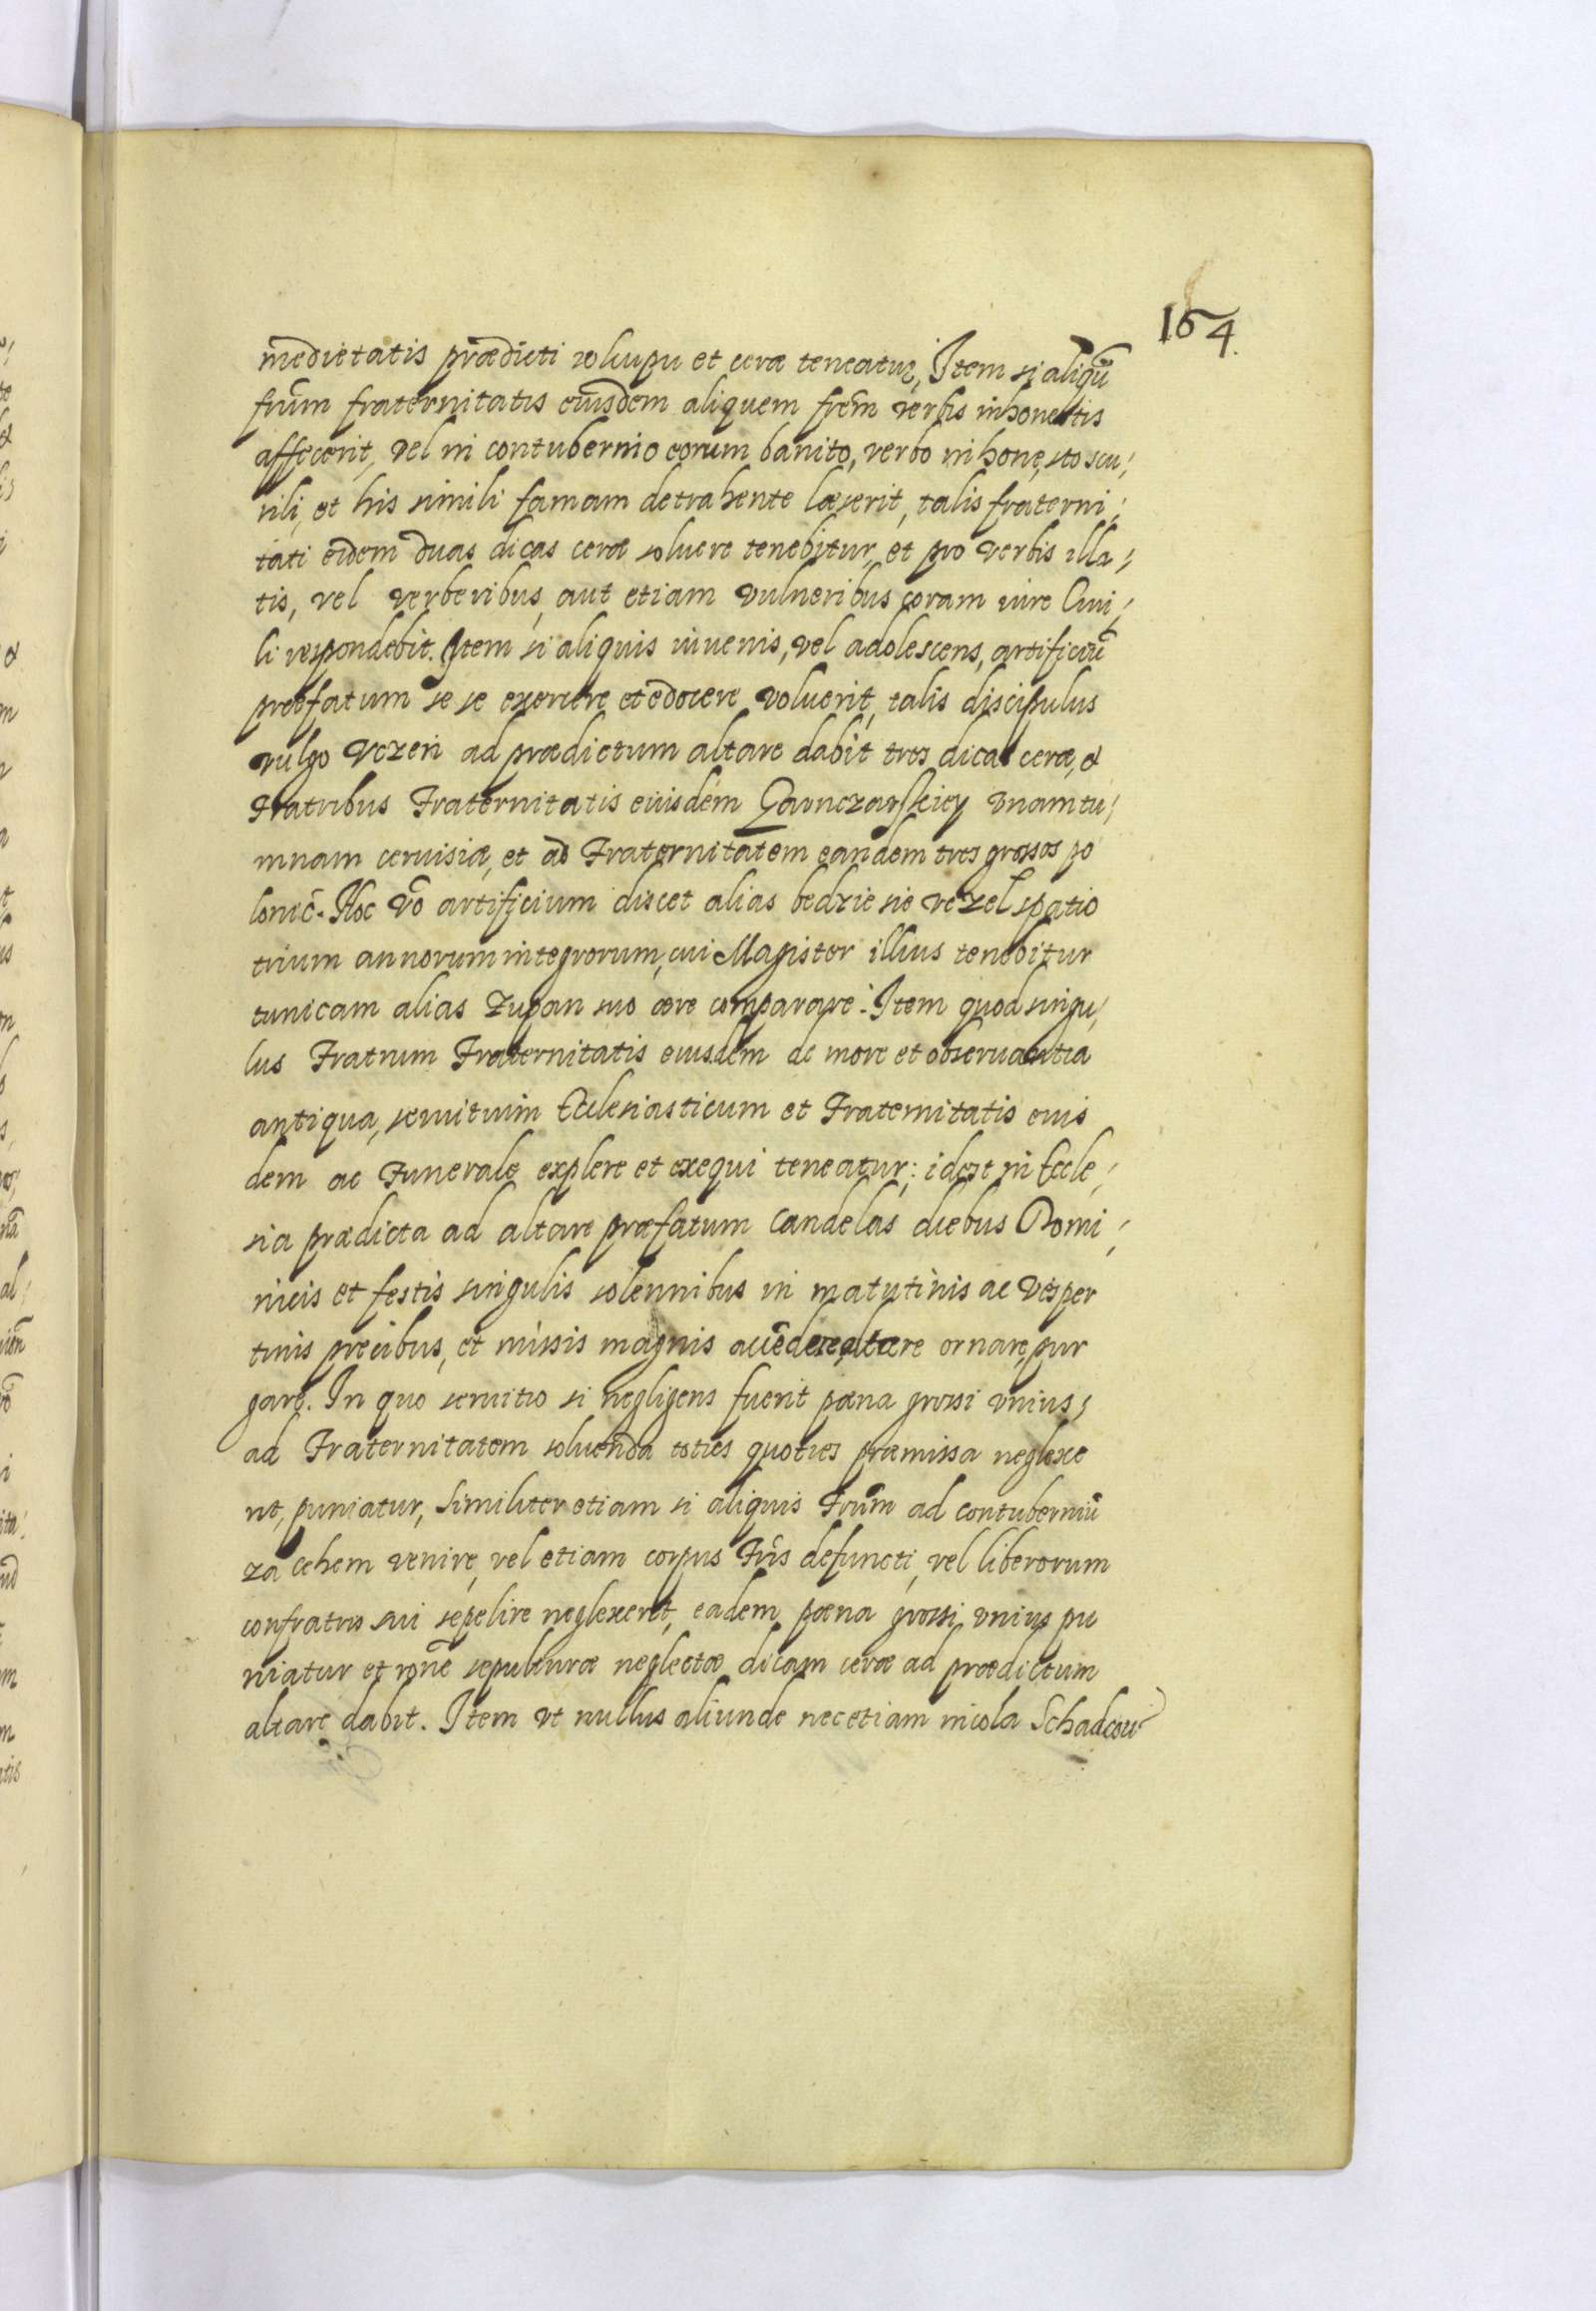 164.
medietatis prædicti wkupu et ceræ teneatur, Item si aliqũ
frũm fraternitatis eiusdem aliquem frẽm verbis inhonestis
affecerit, vel in contubernio eorum banito, verbo inhonesto scu,
rili, et his simili famam detrahente læserit, talis fraterni,
tati eidem duas dicas ceræ soluere tenebitur, et pro verbis illa,
tis, vel verberibus, aut etiam vulneribus coram iure Ciui,
li respondebit. Item si aliquis iuuenis, vel adolescens, artificiũ
præfatum se se exercere et edocere voluerit, talis discipulus
vulgo vczen ad prædictum altare dabit tres dicas ceræ, &
Fratribus Fraternitatis eiusdem Garnczarskiey vnam tu,
nnam ceruisiæ, et ad Fraternitatem eandem tres grossos po
lonic̃. Hoc vo͂ artificium discet alias bedzie sie vczel spatio
trium annorum integrorum, cui Magister illius tenebitur
tunicam alias zupan suo ære comparare. Item quod singu,
lus Fratrum Fraternitatis eiusdem de more et obseruantia
antiqua, seruitium Ecclesiasticum et Fraternitatis eius
dem ac Funerale explere et exequi teneatur; idest in Eccle,
sia prædicta ad altare præfatum candelas diebus Domi,
nicis et festis singulis solennibus in matutinis ac vesper
tinis precibus, et missis magnis accedere, altare ornare, pur
gare. In quo seruitio si negligens fuerit pæna grossi vnius,
ad Fraternitatem soluenda toties quoties præmissa neglexe
rit, puniatur, Similiter etiam si aliquis Frũm ad contuberniũ
za cehem venire, vel etiam corpus Fris̃ defuncti, vel liberorum
confratris sui sepelire neglexerit, eadem pæna grossi vnius pu
niatur et rõne sepulturæ neglectæ dicam ceræ ad prædictum
altare dabit. Item vt nullus aliunde nec etiam incola Schadcou